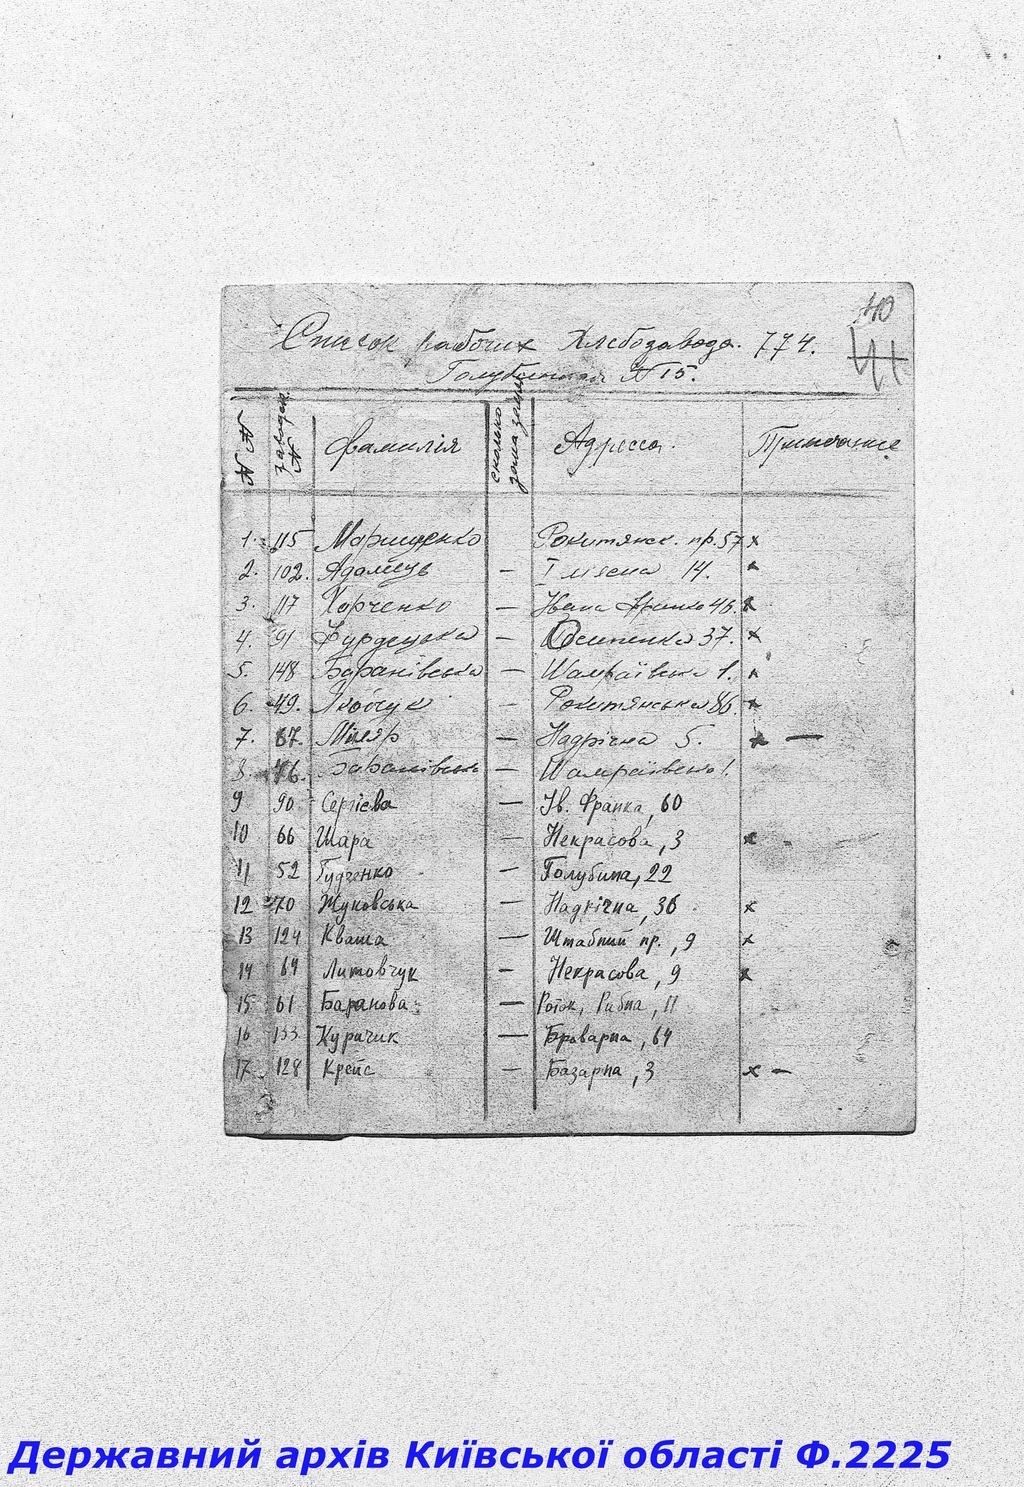 40
41
Список рабочих Хлебозавода. 774.
Голубинная №15.
№№ завод. № фамилія сколько дома Адресса Примечание
1. 115 Марищенко Рокитянск. пр. 57 x
2. 102. Адамець — 14. x
3. 117 Харченко — Івана Франко 46. x
4. 91 — Осипенка 37. x
5. 148 Баранівська — Шамраївська 1. x
6. 49. Якобчук — Рокитянська 86. x
7. 67. Міляр — Надрічна 5. x —
8. 76. Баранівська — Шамраївська 1.
9 90 Сергієва — Ів. Франка, 60
10 66 Шара — Некрасова, 3 x
11 52 Гудченко — Голубина, 22
12 70 Жуковська — Надрічна, 36 x
13 124 Кваша — Штабний пр., 9 x
14 64 Литовчук — Некрасова, 9 x
15 61 Баранова — Роток, Рибна, 11
16 133 Курачик — Броварна, 64
17 128 Крейс — Базарна, 3 x —
Державний архів Київської області Ф.2225